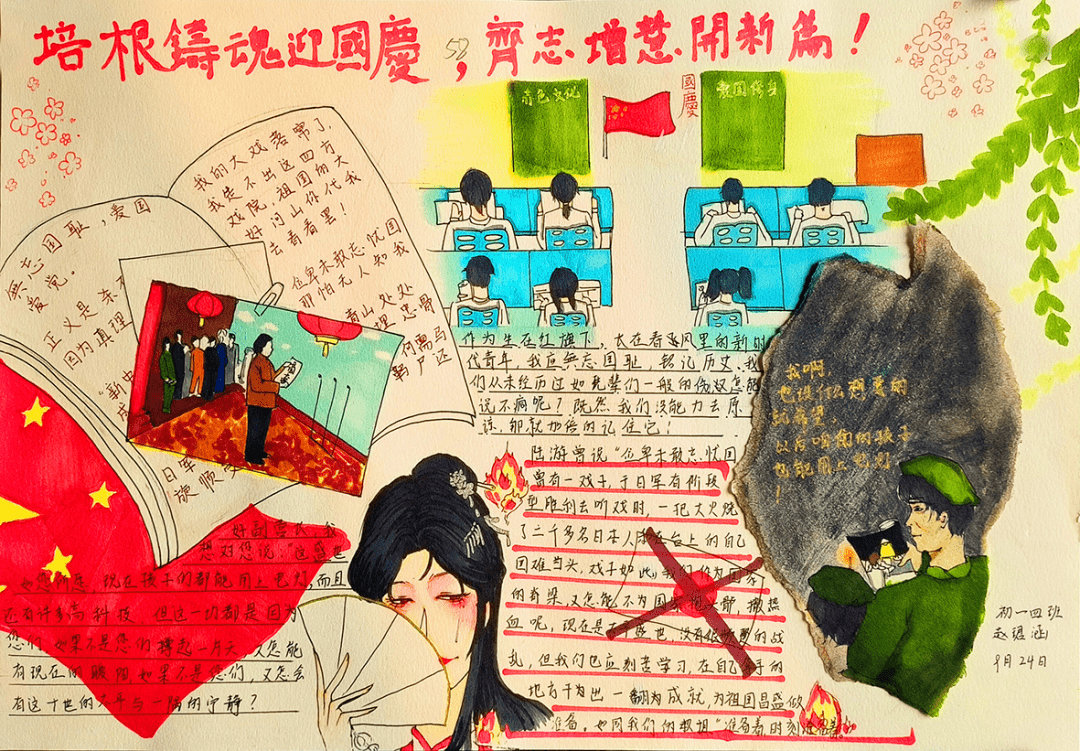 培根鑄魂迎國慶，齊志增慧開新篇！
國慶
我的大戏落幕了，
我走不出这四方
戏院，祖国的大
好河山你代我
去看看罢！
位卑未敢忘忧国
那怕无人知我
青山处处埋忠骨
何需马
尸还
忘国耻，爱国
爱党。
正义是东
因为真理
新中
日军
旅顺
作为生在红旗下，长在春风里的新时
代青年，我应無忘国耻，铭记历史，我
们从未经历过如先辈们一般的伤又怎能
说不痛呢？既然我们没能力去原
谅，那就加倍的记住它！
陆游曾说“位卑未敢忘忧国
曾有一戏子，于日军有阶段
型胜利去听戏时，一把大火烧
了二千多名日本人
在台上的自己
国难当头，戏子如此，我们作为国家
的脊梁，又怎能不为国家抛头颅，撒热
血呢，现在是
盛世，没有
的战
乱，但我们也应刻苦学习，在自己
的
地方干出一翻为成就，为祖国昌盛做
准备，如同我们的校训“准备着时刻准备着”
我啊，
也没什么想要的
以后咱们的孩子
都能用上电灯
！
好
想对您说：“这盛世
如您所愿，现在孩子们都能用上电灯，而且
还有许多高科技，但这一切都是因为
您们，如果不是您们撑起一片天，又怎能
有现在的
如果不是您们，又怎会
有这十世的太平与一隅的宁静？
初一四班
赵
涵
9月24日